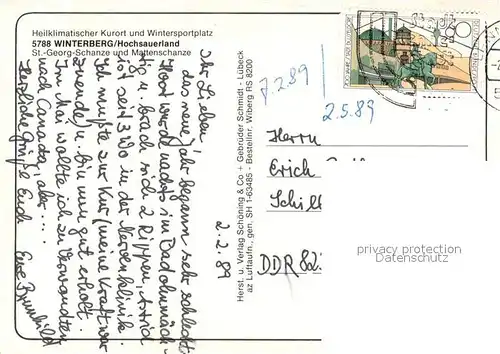 Heilklimatischer Kurort und Wintersportplatz
5788 WINTERBERG/Hochsauerland
St.-Georg-Schanze und Mattenschanze
Ihr Lieben!
das neue Jahr begann sehr schlecht.
Horst wurde nachts im Bad ohnmäch-
tig u. brach sich 2 Rippen, Astrid
ist seit 3 Wo in der Nervenklinik.
Ich mußte zur Kur (meine Kraft war
zuende) u. bin nun gut erholt.
Im Mai wollte ich zu Verwandten
nach Canada, aber....
Herzliche Grüße Euch
Eure Brunhild
2.2.89
Herst. u. Verlag Schöning & Co + Gebrüder Schmidt - Lübeck
az Luftaufn., gen. SH 1-63485 - Bestellnr. Wiberg RS 8200
7.2.89
2.5.89
80
Herrn
Erich
Schill
DDR 82
privacy protection
Datenschutz